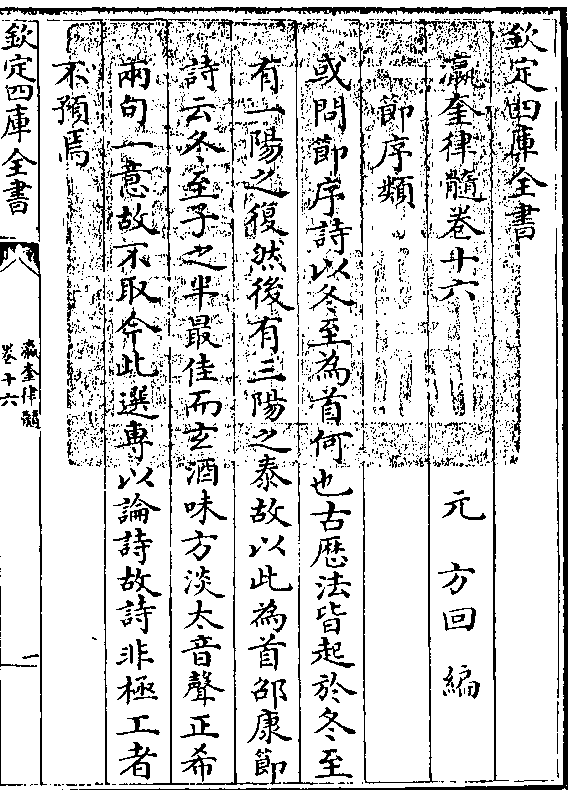 欽定四庫全書
瀛奎律髓卷十六
元 方回 編
節序類
或問節序詩以冬至為首何也古厯法皆起於冬至
有一陽之復然後有三陽之泰故以此為首邵康節
詩云冬至子之半最佳而玄酒味方淡太音聲正希
兩句一意故不取今此選専以論詩故詩非極工者
不預焉
欽定四庫全書
瀛奎律髓
卷十六
一